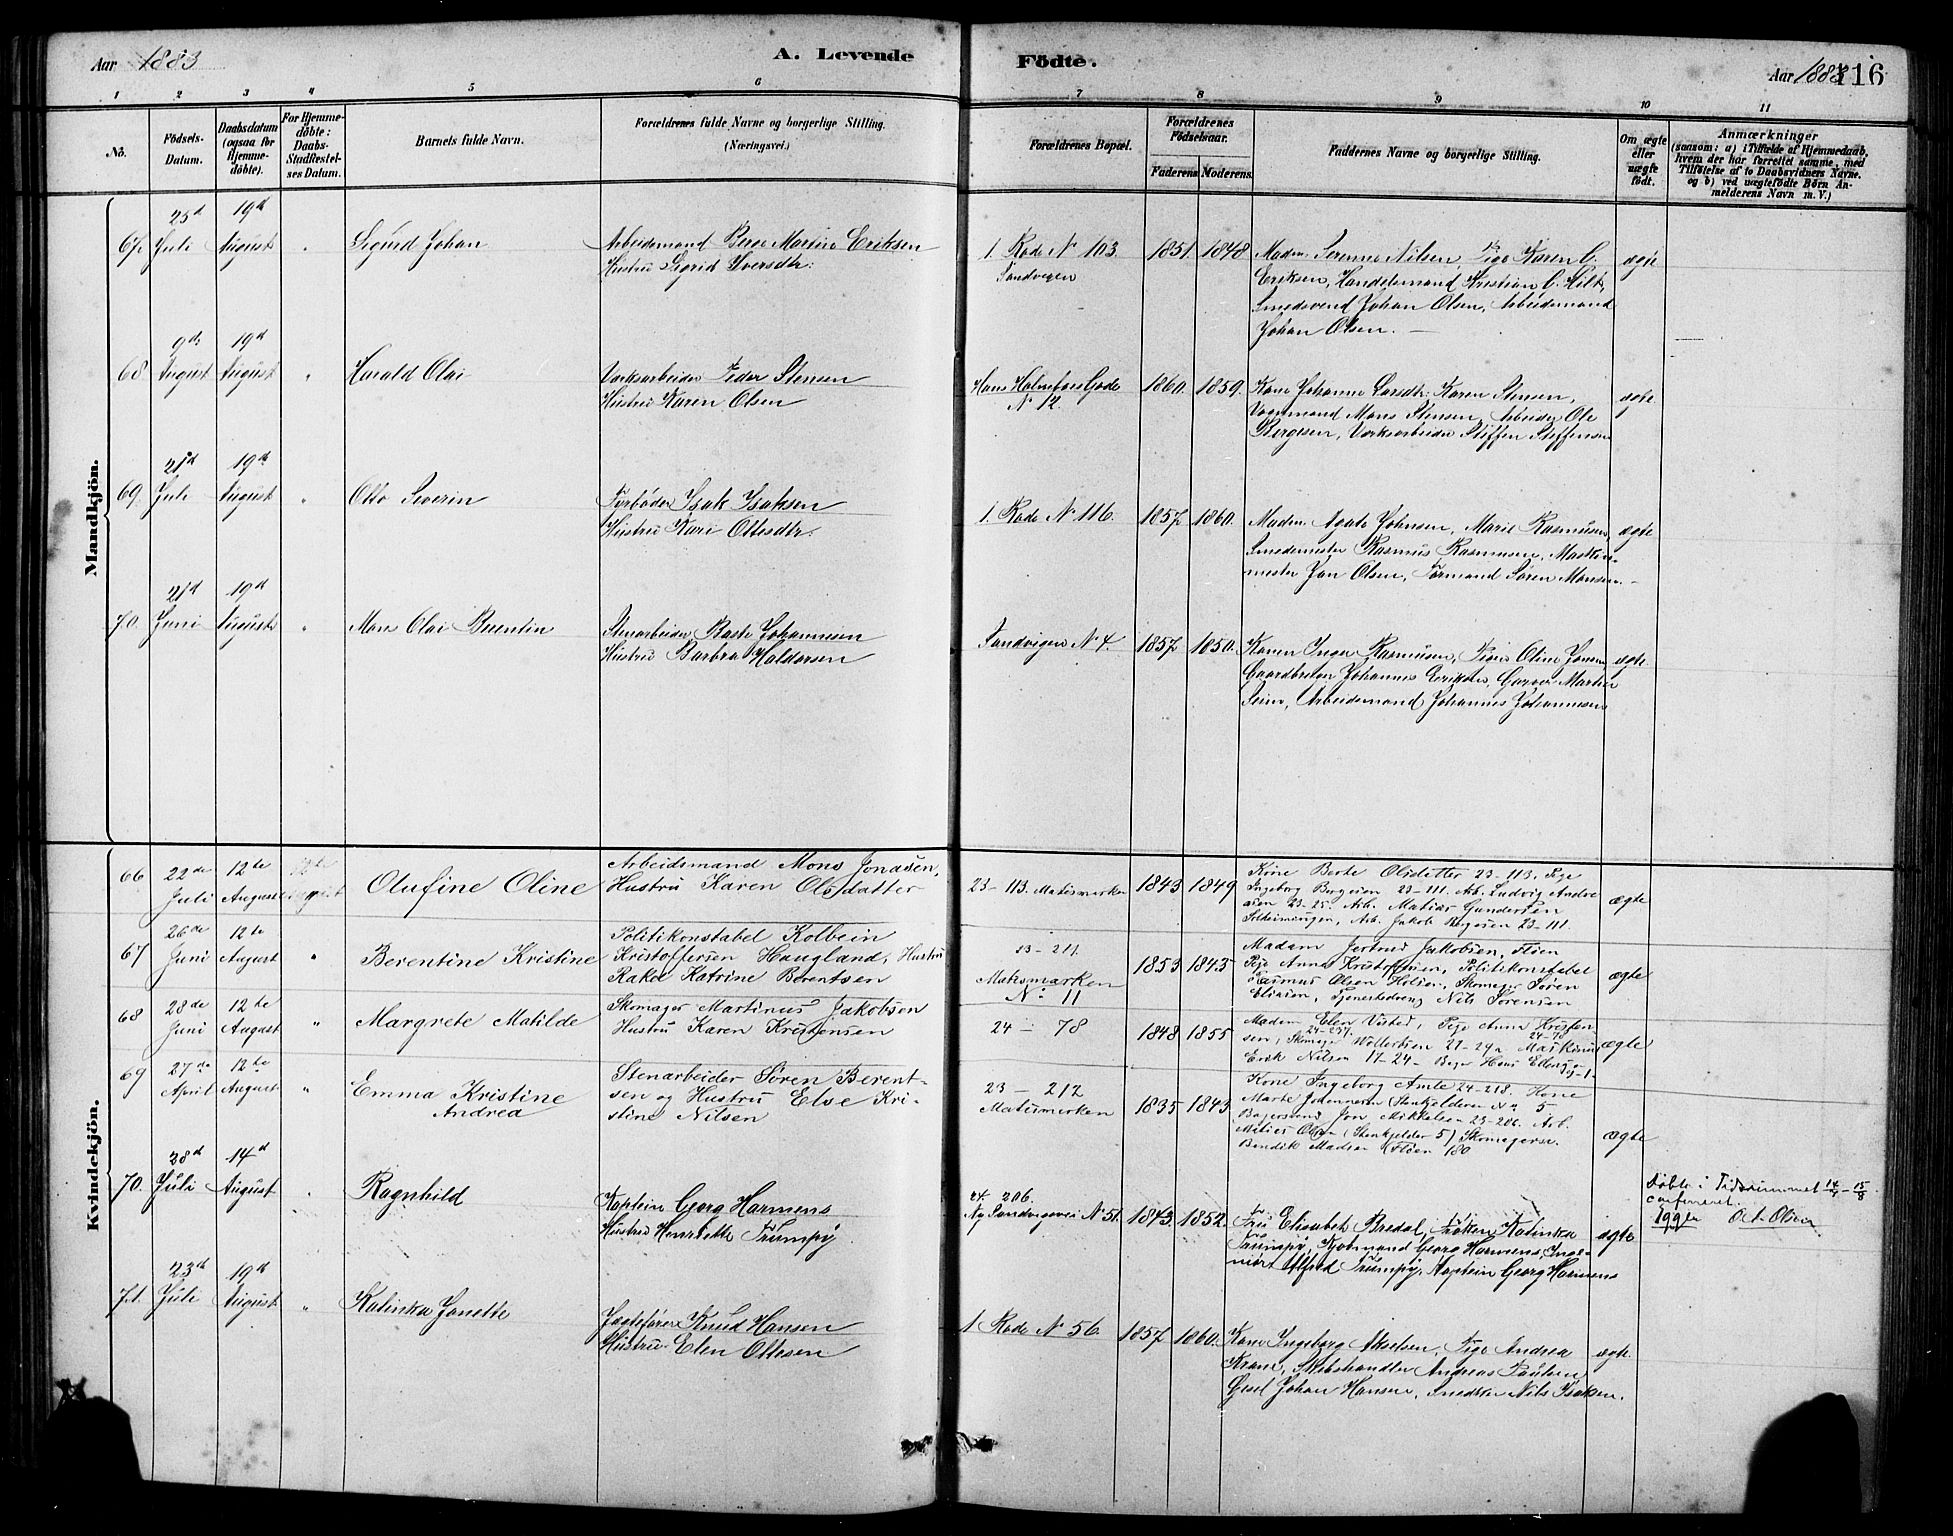 Aar 1883
A. Levende
Födte.
Aar 1883 116
1 2 3 4 5 6 7 8 9 10 11
No.
Födsels-Datum.
Daabsdatum (ogsaa for Hjemme-døbte).
For Hjemme-døbte: Daabs-Stadfæstel-ses Datum.
Barnets fulde Navn.
Forældrenes fulde Navne og borgerlige Stilling. (Næringsvei.)
Forældrenes Bopæl.
Forældrenes Födselsaar.
Faderens. Moderens.
Faddernes Navne og borgerlige Stilling.
Om ægte eller uægte født.
Anmærkninger
(saasom: a) i Tilfælde af Hjemmedaab,
hvem der har forrettet samme, med
Tilføielse af to Daabsvidners Navne.
og b) ved uægtefødte Børn An-
melderens Navn m. V.)
Mandkjön.
67. 25d Juli 19d August " Sigurd Johan
Arbeidsmand Berge Martin Eriksen
Hustru Sigrid Iversdtr:
1. Rode N 103. Sandvigen
1851. 1848
Madm. Serenne Nilsen, Pige Karen C.
Eriksen, Handelsmand Kristian C. Hilt,
Smedsvend Johan Olsen, Arbeidsmand
Johan Olsen. —
ægte
68. 9de August 19d August " Harald Olai
Værksarbeider Peder Stensen
Hustru Karen Olsen
Hans Holmeboes Gade N 12.
1860. 1859.
Kone Johanne Larsdtr, Karen Stensen,
Vognmand Mons Stensen, Arbeider Ole
Børgesen, Værksarbeider Steffen Steffensen
ægte
69. 21d Juli 19d August " Otto Severin
Forbøder Isak Isaksen
Hustru Kari Ottesdtr.
1. Rode N 116.
1857 1860.
Madm. Agate Johnsen, Marie Rasmusen,
Smedemester Rasmus Rasmusen, Maskin-
mester Jan Olsen, Formand Sören Monsen.
ægte
70. 21d Juni 19d August " Mons Olai Berentin
Stenarbeider Raste Johannesen
Hustru Barbra Haldorsen
Sandvigen N 4.
1857 1850.
Karen Inger Rasmusen, Pige Oline Jonsen
Gaardbruker Johannes Eriksen, Garver Martin
Seim, Arbeidsmand Johannes Johannesen
ægte
Kvindekjön.
66 22de Juli 12te August 12te August Olufine Oline
Arbeidsmand Mons Jonasen,
Hustru Karen Olsdatter
23-113. Matismarken
1843 1849
Kone Berte Olsdatter 23-113. Pige
Ingeborg Børgesen 23-111. Arb. Ludvig Andre
asen 23-25. Arb. Matias Gundersen
Solheimsvigen, Arb. Jakob Børgesen 23-111.
ægte
67 26de Juni 12te August " Berentine Kristine
Politikonstabel Kolbein
Kristoffersen Haugland, Hustru
Rakel Katrine Berentsen
23-211. Matismarken No 11
1853 1843
Madam Jertrud Jakobsen, Fløen
Pige Anna Kristoffersen, Politikonstabel
Rasmus Olsen Holsen, Skomager Sören
Eliasen, Tjenestedreng Nils Sörensen
ægte
68 28de Juni 12te August " Margrete Matilde
Skomager Martinus Jakobsen
Hustru Karen Kristensen
24-78
1848 1855
Madm Elen Visted, Pige Anna Kristen-
24-237. 24-78
sen, Skomager Wollertsen 21-29a Maskinist
Erik Nilsen 17-24-
ægte
69 27de April 12te August " Emma Kristine Andrea
Stenarbeider Sören Berent-
sen og Hustru Else Kri-
stine Nilsen
23-212 Matismarken
1835 1843
Kone Ingeborg Amle 24-218. Kone
Marte Johannesen Stenkjelderen No 5
Bagersvend Jon Mikkelsen 23-206. Arb.
Matias Olsen (Stenkjelder 5) Skomagersv.
Bendik Madsen Fløen 180
ægte
70. 28d Juli 14d August " Ragnhild
Kaptein Georg Harmens
Hustru Henriette Trumpy
24. 206. Ny Sandvigsvei N 51.
1843. 1852.
Fru Elisabet Bredal, Frøken Kalinka
Trumpy, Kjøbmand Georg Harmens, Inge-
niør Alfred Trumpy, Kaptein Georg Harmens
ægte
Døbte i Tidsrummet 14/7 - 15/8
confirmeret.
1992 O. A. Olsen
71. 23d Juli 19d August " Kalinka Janette
Jagtefører Knud Hansen
Hustru Elen Ottesen
1 Rode N 56.
1857 1860.
Kone Ingeborg Akselsen, Pige Andrea
Krane, Skibshandler Andreas Paulsen
Gesel Johan Hansen, Smedsv. Nils Isaksen.
ægte.